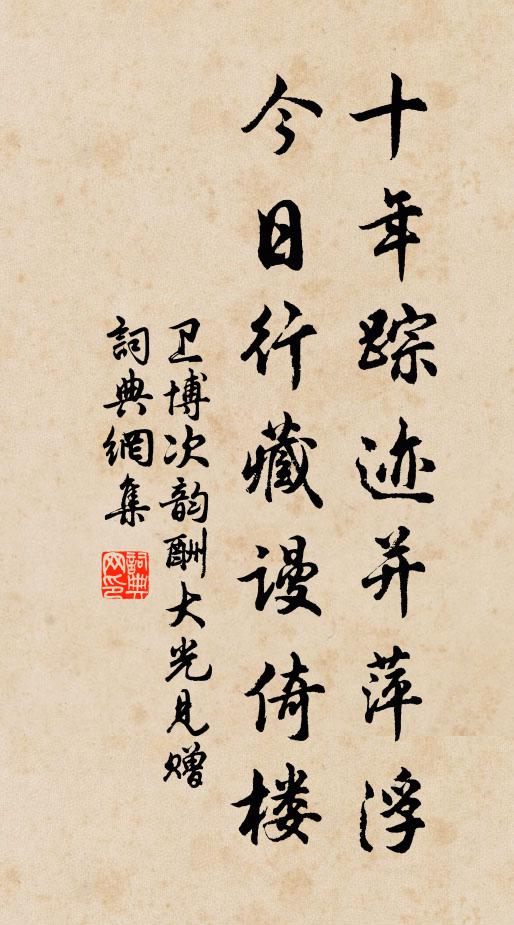 十年踪迹并萍浮
今日行藏谩倚楼
卫博次韵酬大光见赠
詞典網集
詞典
网印